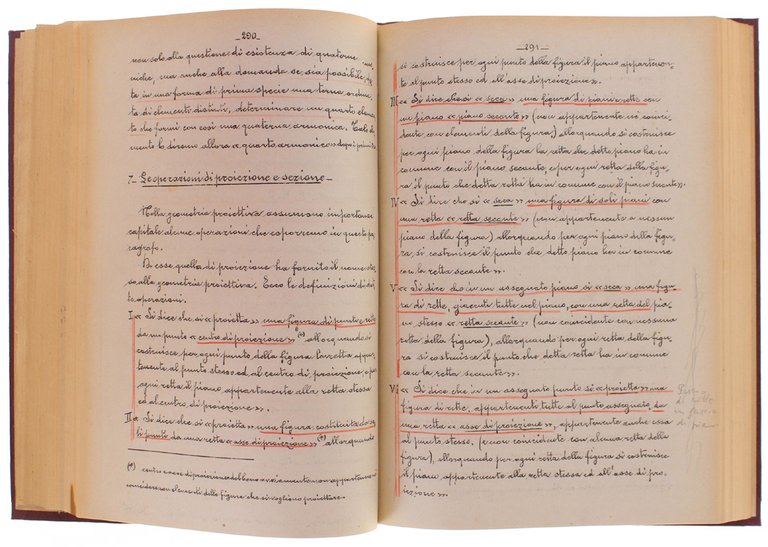 290
non solo alla questione di esistenza di quaterne
niche, ma anche alla domanda se sia possibile,
ta in una forma di prima specie una terna ordina
di elementi distinti, determinare un quarto elemen
to che formi con essi una quaterna armonica. Tale ele
mento lo diremo allora « quarto armonico » dopo i primi
7- Le operazioni di proiezione e sezione -
Nella geometria proiettiva assumono importanza
capitale alcune operazioni che esporremo in questo pa
ragrafo.
Di esse quella di proiezione ha fornito il nome stes
so alla geometria proiettiva. Ecco le definizioni di det
te operazioni.
I « Si dice che si « proietta » una figura di punti e rette
da un punto « centro di proiezione » (*) allorquando si
costruisce, per ogni punto della figura, la retta appar
tenente al punto stesso ed al centro di proiezione, e per
ogni retta il piano appartenente alla retta stessa
ed al centro di proiezione ».
II « Si dice che si « proietta » una figura costituita da so
li punti da una retta « asse di proiezione » (*) allorquando
(*) centro e asse di proiezione debbono ovviamente non appartenere o
coincidere con elementi delle figure che si vogliono proiettare.
291
si costruisce per ogni punto della figura il piano appartenen
te al punto stesso ed all'asse di proiezione ».
III « Si dice che si « seca » una figura di piani e rette con
un piano « piano secante » (non appartenente né coinci
dente con elementi della figura) allorquando si costruisce
per ogni piano della figura la retta che detto piano ha in
comune con il piano secante, e per ogni retta della figu
ra il punto che detta retta ha in comune con il piano secante ».
IV « Si dice che si « seca » una figura di soli piani con
una retta « retta secante » (non appartenente a nessun
piano della figura) allorquando per ogni piano della figu
ra si costruisce il punto che detto piano ha in comune
con la retta secante ».
V « Si dice che in un assegnato piano si « seca » una figu
ra di rette, giacenti tutte nel piano, con una retta del pia
no stesso « retta secante » (non coincidente con nessuna
retta della figura), allorquando per ogni retta della figu
ra si costruisce il punto che detta retta ha in comune
con la retta secante ».
VI « Si dice che in un assegnato punto si « proietta » una
figura di rette, appartenenti tutte al punto assegnato, da
una retta « asse di proiezione », appartenente anche essa
al punto stesso, (e non coincidente con alcuna retta della
figura), allorquando per ogni retta della figura si costruisce
il piano appartenente alla retta stessa ed all'asse di pro
iezione ».
di rette